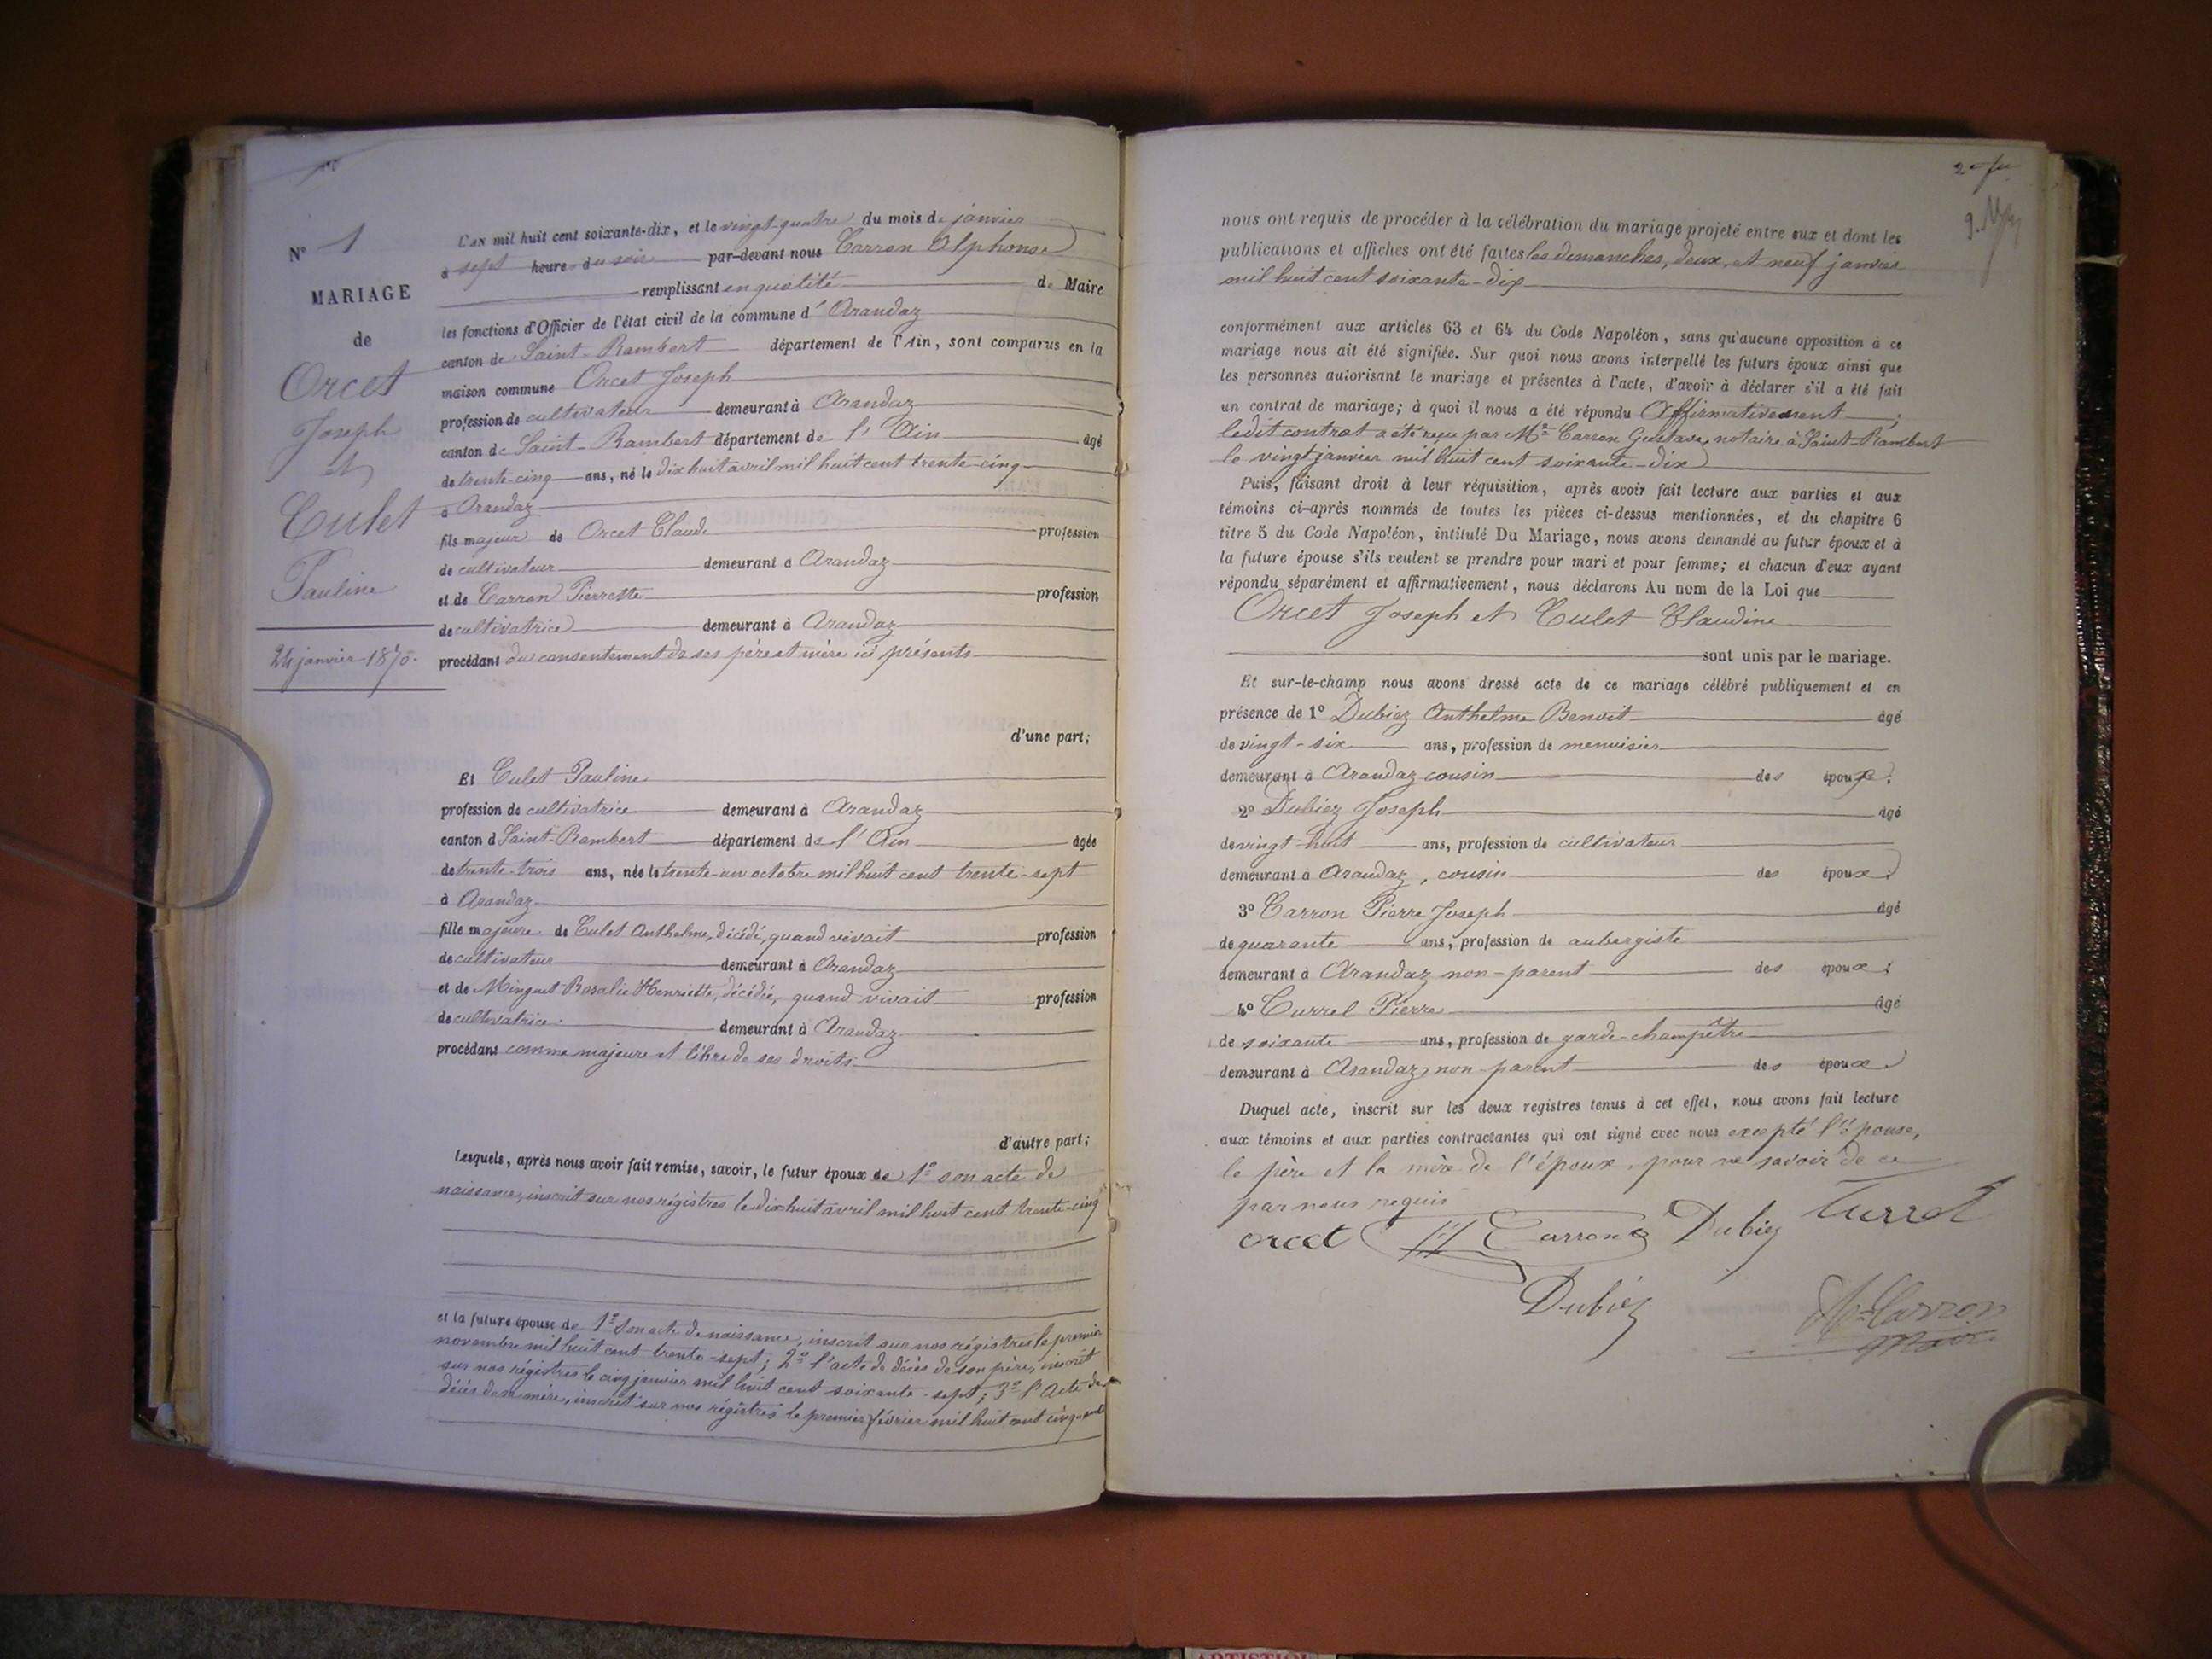 N° 1
MARIAGE
de
Orcet
Joseph
et
Culet
Pauline
24 janvier 1870.
L'AN mil huit cent soixante-dix, et le vingt-quatre du mois de janvier
à sept heure du soir par-devant nous Carron Alphonse
remplissant en qualité de Maire
les fonctions d'Officier de l'état civil de la commune d' Arandaz
canton de Saint-Rambert département de l'Ain, sont comparus en la
maison commune Orcet Joseph
profession de cultivateur demeurant à Arandaz
canton de Saint-Rambert département de l'Ain âgé
de trente-cinq ans, né le dix huit avril mil huit cent trente-cinq
à Arandaz
fils majeur de Orcet Claude profession
de cultivateur demeurant à Arandaz
et de Carron Pierrette profession
de cultivatrice demeurant à Arandaz
procédant du consentement de ses père et mère ici présents
d'une part;
Et Culet Pauline
profession de cultivatrice demeurant à Arandaz
canton d Saint-Rambert département de l'Ain âgée
de trente-trois ans, née le trente-un octobre mil huit cent trente-sept
à Arandaz
fille majeure de Culet Anthelme, décédé, quand vivait profession
de cultivateur demeurant à Arandaz
et de Minguet Rosalie Henriette, décédée, quand vivait profession
de cultivatrice demeurant à Arandaz
procédant comme majeure et libre de ses droits
d'autre part;
Lesquels, après nous avoir fait remise, savoir, le futur époux de 1° son acte de
naissance, inscrit sur nos régistres le dix huit avril mil huit cent trente-cinq
et la future épouse de 1° son acte de naissance, inscrit sur nos régistres le premier
novembre mil huit cent trente-sept; 2° l'acte de décès de son père, inscrit
sur nos régistres le cinq janvier mil huit cent soixante-sept; 3° l'acte de
décès de sa mère, inscrit sur nos régistres le premier février mil huit cent cinquante
2e fer
nous ont requis de procéder à la célébration du mariage projeté entre eux et dont les
publications et affiches ont été faites les dimanches, deux, et neuf janvier
mil huit cent soixante-dix
conformément aux articles 63 et 64 du Code Napoléon, sans qu'aucune opposition à ce
mariage nous ait été signifiée. Sur quoi nous avons interpellé les futurs époux ainsi que
les personnes autorisant le mariage et présentes à l'acte, d'avoir à déclarer s'il a été fait
un contrat de mariage; à quoi il nous a été répondu Affirmativement;
ledit contrat a été reçu par Me Carron Gustave, notaire à Saint-Rambert
le vingt janvier mil huit cent soixante-dix
Puis, faisant droit à leur réquisition, après avoir fait lecture aux parties et aux
témoins ci-après nommés de toutes les pièces ci-dessus mentionnées, et du chapitre 6
titre 5 du Code Napoléon, intitulé Du Mariage, nous avons demandé au futur époux et à
la future épouse s'ils veulent se prendre pour mari et pour femme; et chacun d'eux ayant
répondu séparément et affirmativement, nous déclarons Au nom de la Loi que
Orcet Joseph et Culet Claudine
sont unis par le mariage.
Et sur-le-champ nous avons dressé acte de ce mariage célébré publiquement et en
présence de 1° Dubiez Anthelme Benoit âgé
de vingt-six ans, profession de menuisier
demeurant à Arandaz cousin des époux;
2° Dubiez Joseph âgé
de vingt-huit ans, profession de cultivateur
demeurant à Arandaz, cousin des époux;
3° Carron Pierre Joseph âgé
de quarante ans, profession de aubergiste
demeurant à Arandaz non-parent des époux;
4° Currel Pierre âgé
de soixante ans, profession de garde-champêtre
demeurant à Arandaz, non-parent des époux
Duquel acte, inscrit sur les deux registres tenus à cet effet, nous avons fait lecture
aux témoins et aux parties contractantes qui ont signé avec nous excepté l'épouse,
le père et la mère de l'époux, pour ne savoir de ce
par nous requis
orcet Carron Dubiez Currel
Dubiez
Carron
Maire